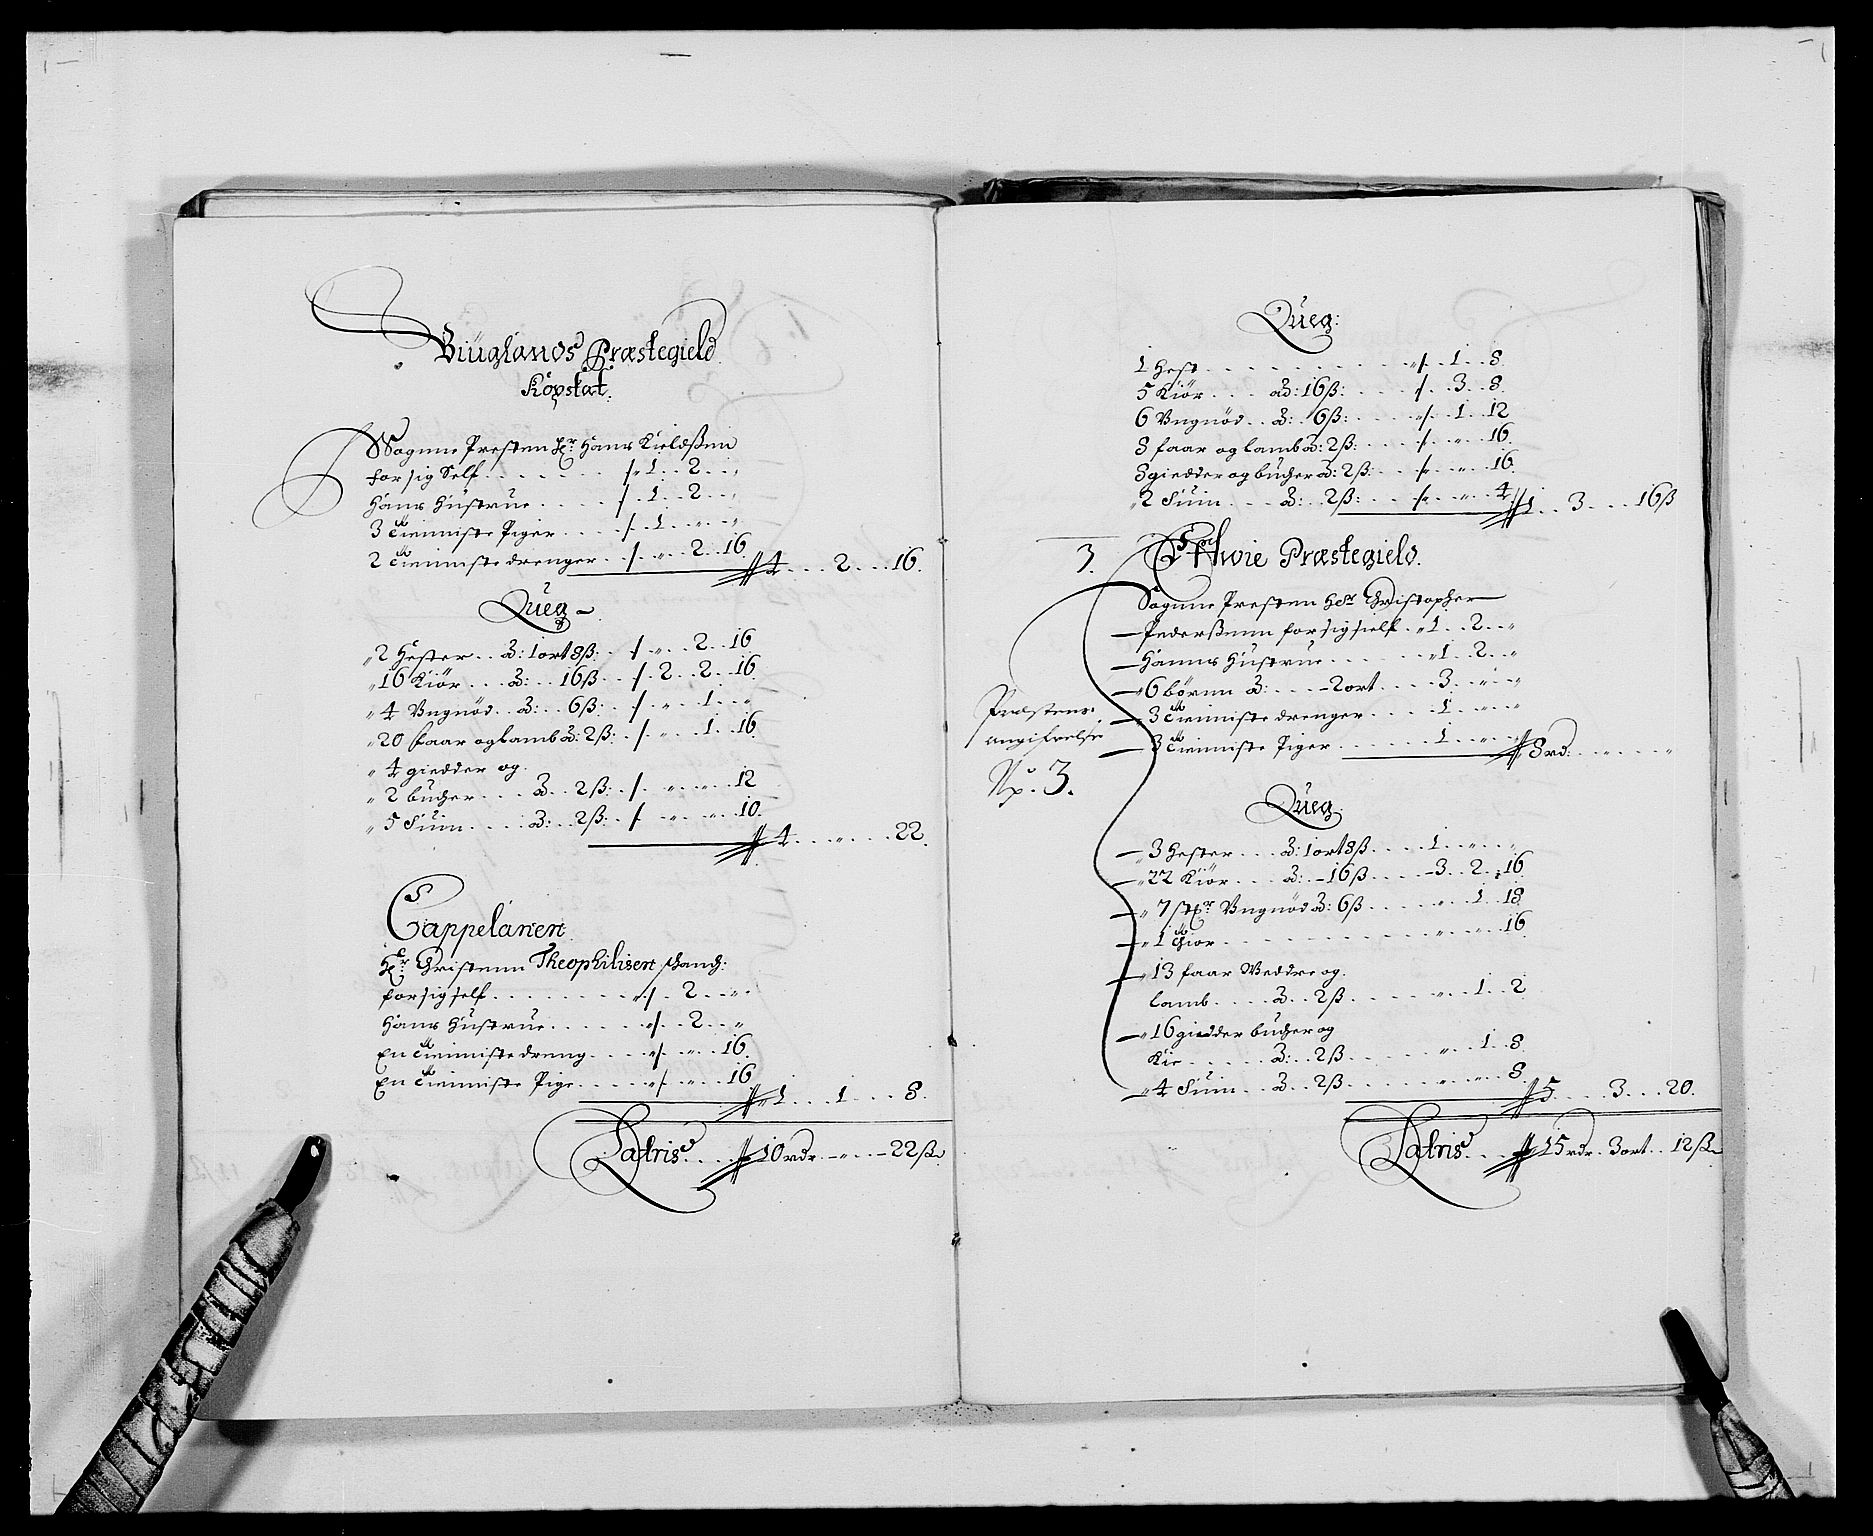 Biuglands Præstegield
Kopstat.
Sogne Presten Hr: Hans Kieldßen
for sig Self . . . . . 1 . . 2 . . "
Hans Hustrue . . . . 1 . . 2 . . "
3 Tienniste Piger . . . 1 . . " . . "
2 Tienniste drenger . . " . . 2 . . 16
4 . . . 2 . . . 16.
Queg
2 Hester . . â: 1 ort 8ß: . . " . . 2 . . 16
16 Kiör . . . â: . . 16ß . . 2 . . 2 . . 16
4 Ungnöd . . â: . . 6ß: . . " . . 1 . . "
20 faar og Lamb â: 2ß: . . " . . 1 . . 16
4 giedder og
2 bucher . . . â . . 2ß: . . " . . " . . 12
5 Suin . . . . â: . . 2ß: . . " . . " . . 10.
4 . . . " . . . 22.
Cappelanen
Hr: Christenn Theophilisen
for sig self . . . . . . . " . 2 . . "
Hans Hustrue . . . . . " . . 2 . . "
En Tienniste dreng . . . . " . . " . . 16
En Tienniste Pige . . . . " . . " . . 16
1 . . . 1 . . . 8.
Latris . . . 10 rdr. - " - 22ß
Queg:
1 Hest . . . . . . . . . . " . . 1 . . 8
5 Kiör . . . ad: 16ß: . . . . 3 . . 8
6 Ungnöd . . â: . . 6ß: . . . . " . . 1 . . 12
8 faar og Lamb â: 2ß: . . . . " . . 16
8 giedder og bucher â: 2ß: . . . " . . 16
2 Suin . . . â: . . 2ß: . . . . " . . 4
1 . . 3 . . . 16ß
3. Præstegield.
Sogne Presten Her Christopher
Pederßenn for sig sielf . . 1 . . 2 . . "
Hanns Hustrue . . . . . . 1 . . 2 . . "
6 börnn â: . . . - 2 ort . . . . 3 . . " . . "
3 Tienniste drenger . . . . 1 . . " . . "
3 Tienniste Piger . . . . . 1 . . " . . "
8 rd: . . " . . . "
Præstens
angifvelse
No. 3.
Queg
3 Hester . . . â: 1 ort 8ß . . . . 1 . . " . . "
22 Kiör . . . â: - 16ß . . . . - 3 . . 2 . . 16
7 Ungnöd â: 6ß . . . . . " . . 1 . . 18
1 Thior . . . . . . . . . . . " . . " . . 16
13 faar Weddre og
Lamb . . . . â . . 2ß . . . . . " . . 1 . . 2
16 giedder bucher og
Kie . . . . . â: . . 2ß . . . . . " . . 1 . . 8
4 Suin . . â . . 2ß . . . . . . " . . " . . 8
5 . . . 3 . . . 20.
Latris . . . 15 rdr. 3 ort . . 12ß